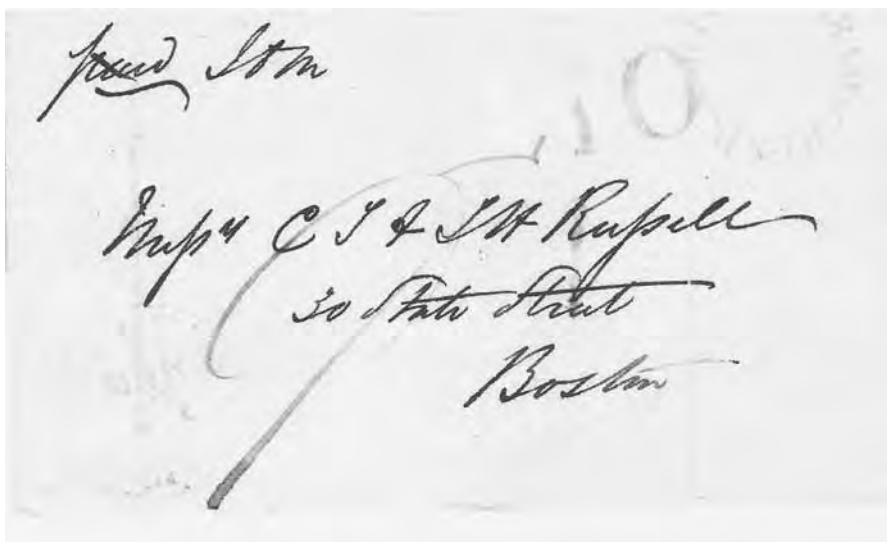 paid
10
Messrs C T & T H Russell
30 State Street
Boston